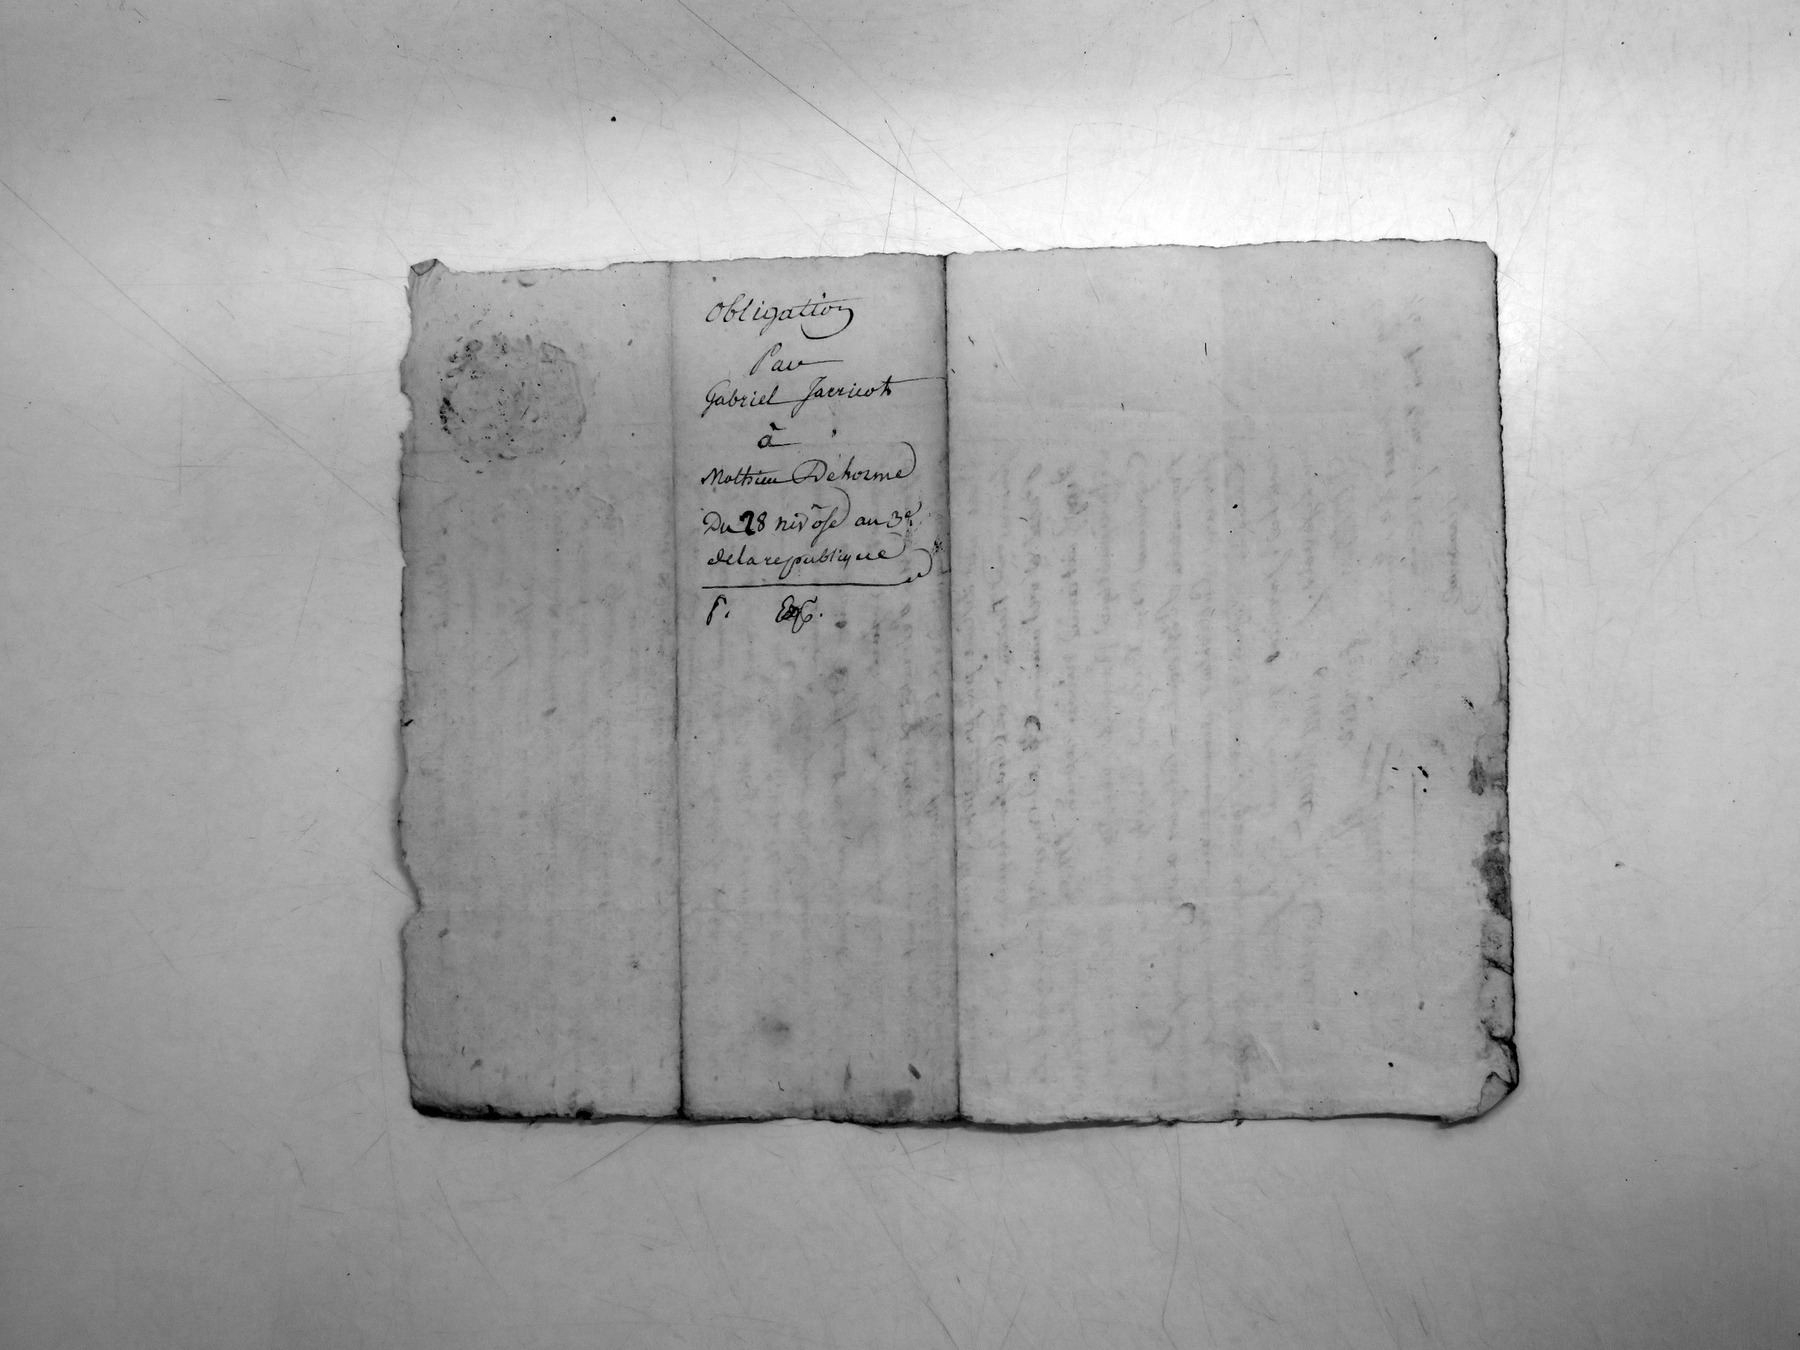 Obligation
Par
Gabriel Jacricot
à
Mathieu Dehorme
Du 28 nivôse an 3e
de la republique
P. Exp.